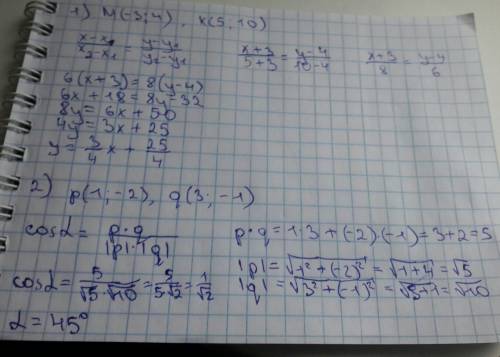 1) M(-3; 4), K(5; 10)
x-x₁/x₂-x₁ = y-y₁/y₂-y₁   x+3/5+3 = y-4/10-4   x+3/8 = y-4/6
6(x+3) = 8(y-4)
6x + 18 = 8y - 32
8y = 6x + 50
4y = 3x + 25
y = 3/4 x + 25/4
2) p(1; -2), q(3; -1)
cosα = p·q/|p|·|q|   p·q = 1·3 + (-2)(-1) = 3+2 = 5
|p| = √1² + (-2)² = √1+4 = √5
cosα = 5/√5·√10 = 5/5√2 = 1/√2   |q| = √3² + (-1)² = √9+1 = √10
α = 45°